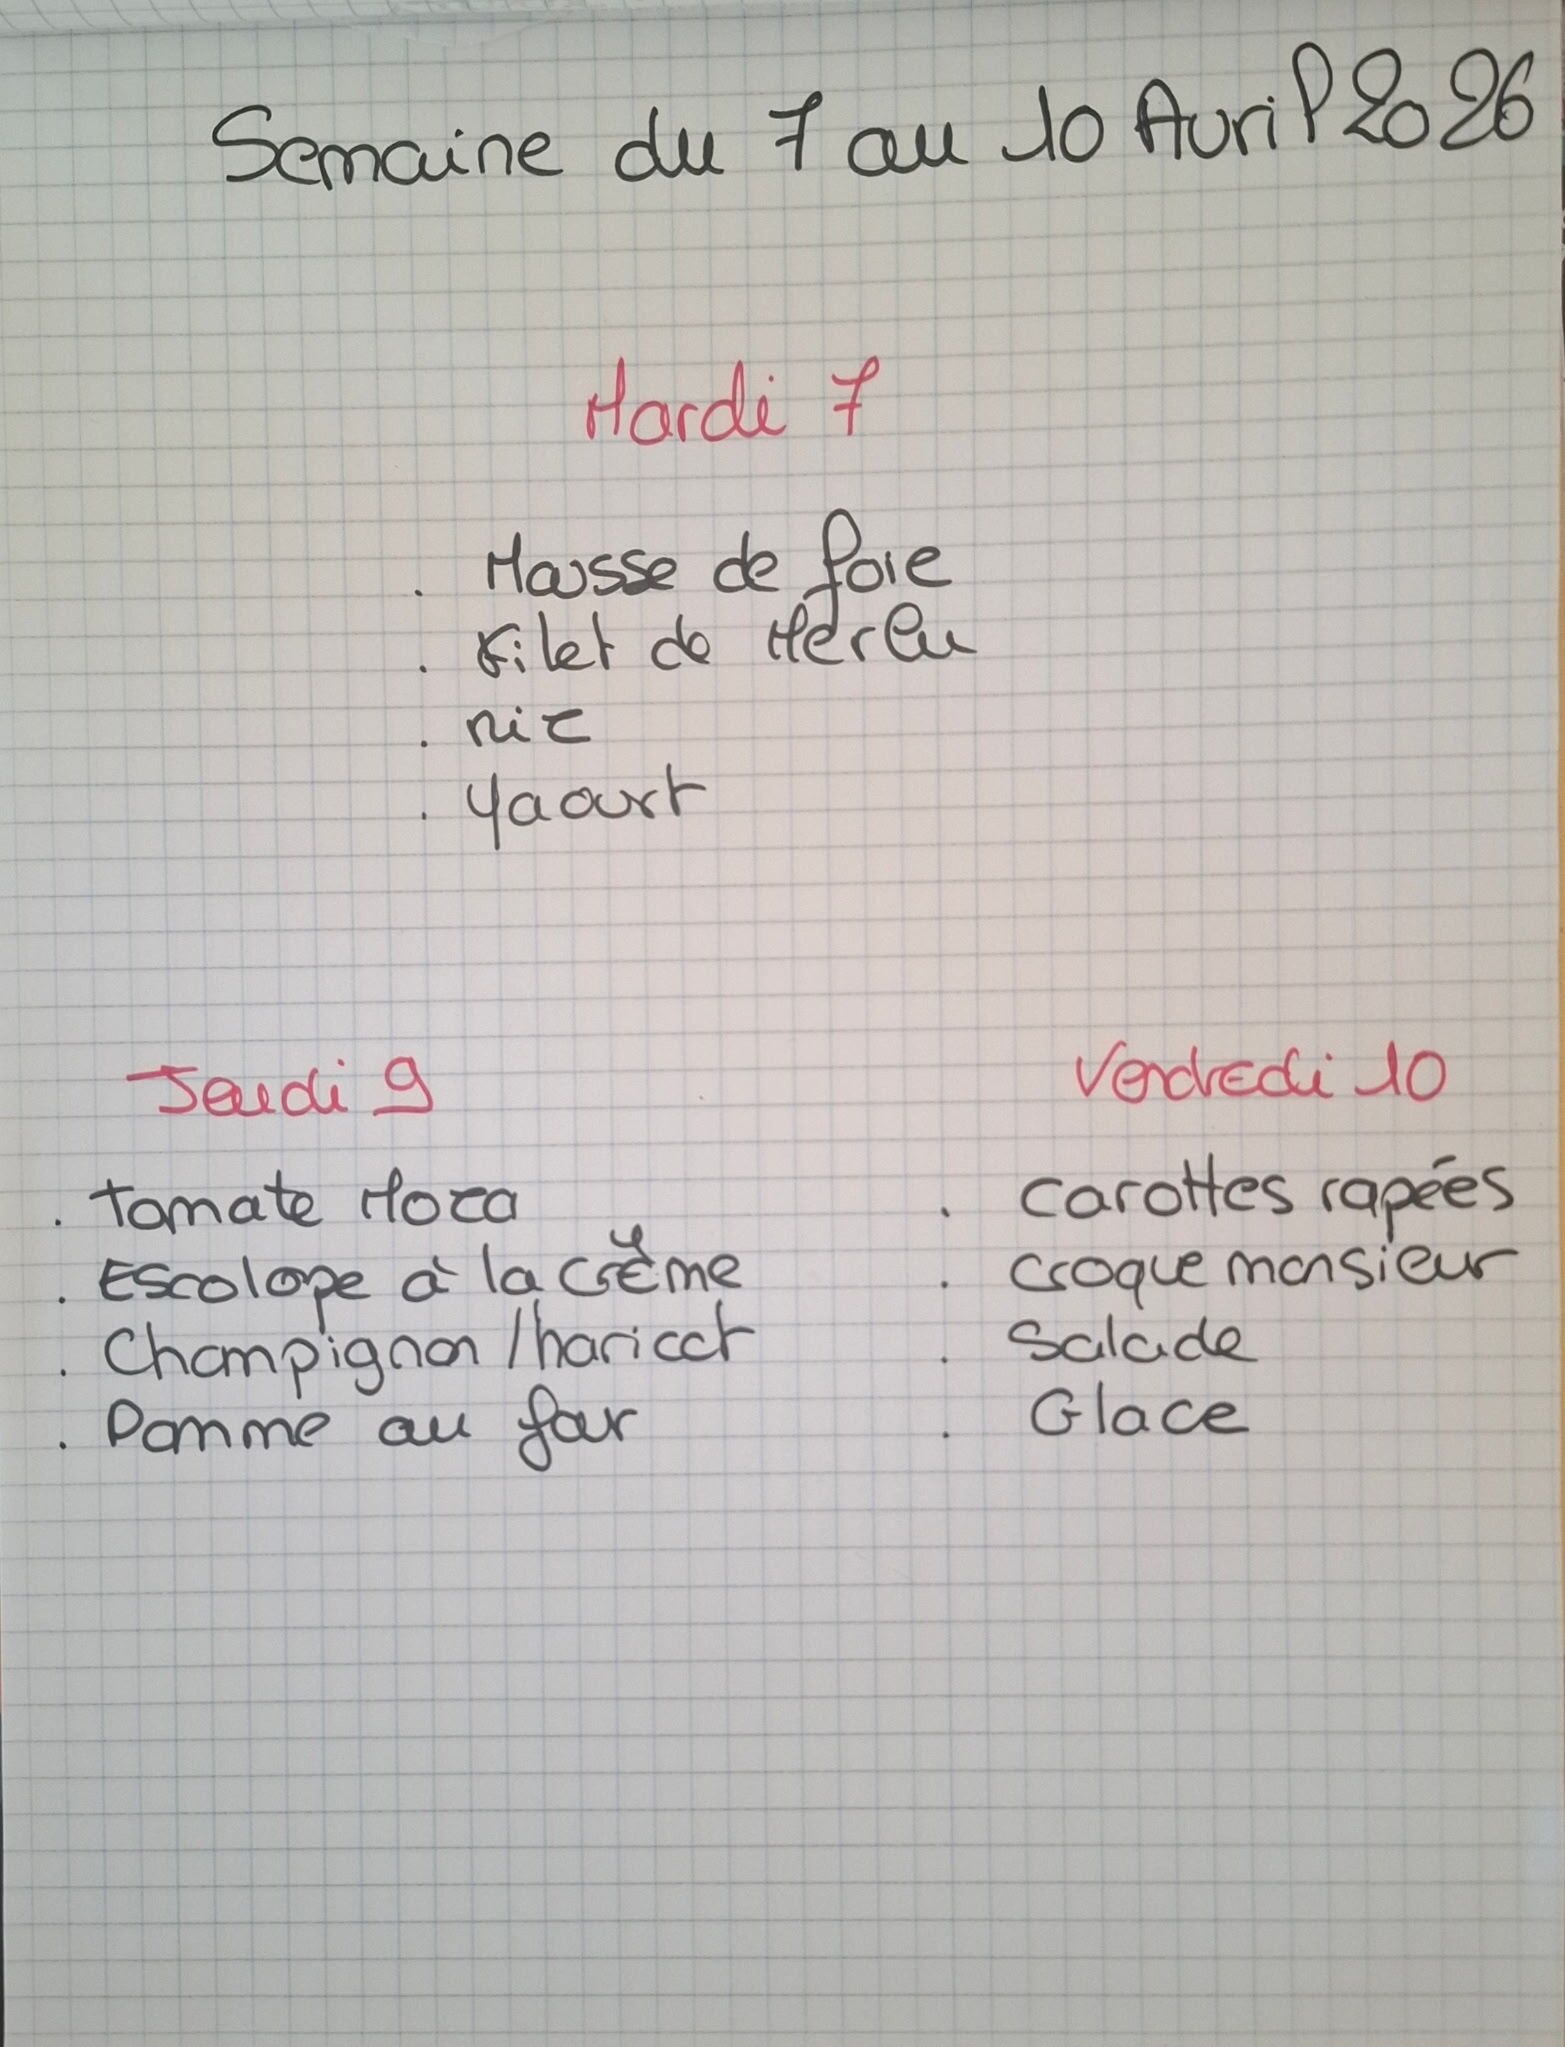 Semaine du 7 au 10 Avril 2026
Mardi 7
. Mousse de foie
. Filet de Merlu
. riz
. Yaourt
Jeudi 9
. Tomate Moza
. Escolope à la crème
. Champignon / haricot
. Pomme au four
Vendredi 10
. Carottes rapées
. Croque monsieur
. Salade
. Glace